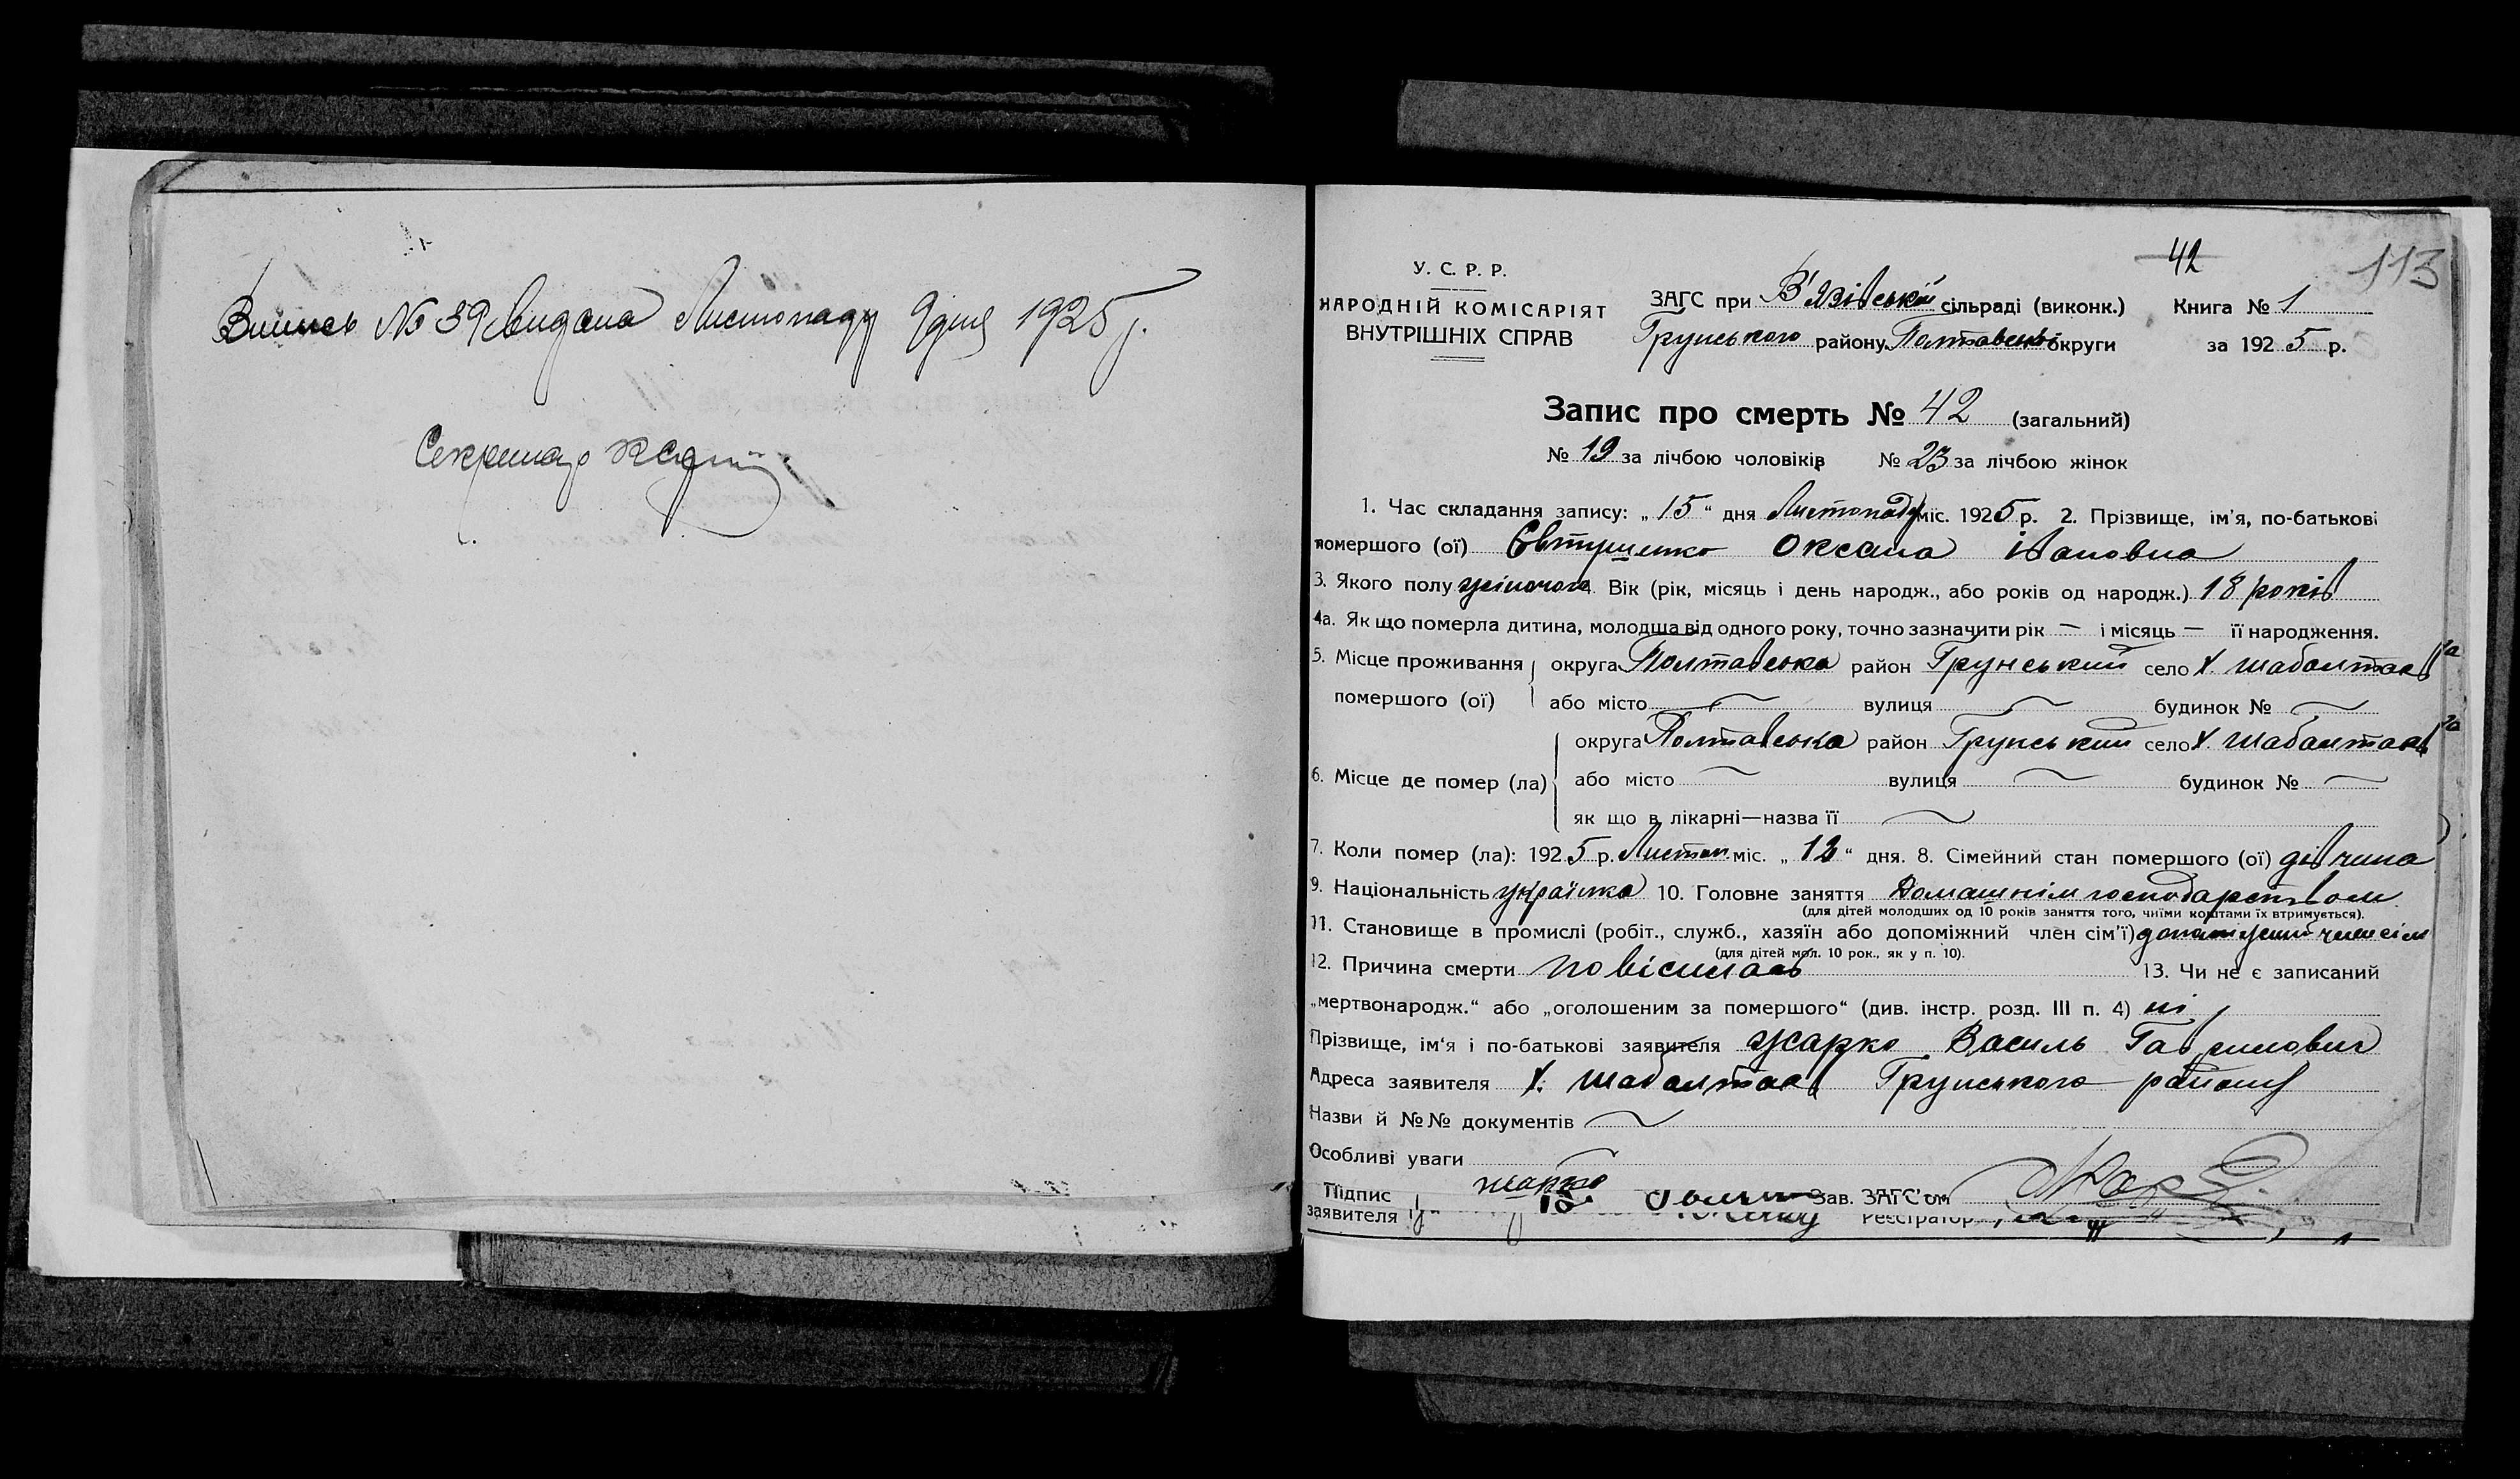 Випись № 39 видана Листопаду 9 дня 1925 р.
Секретар
42
113
У. С. Р. Р.
НАРОДНІЙ КОМІСАРІЯТ
ВНУТРІШНІХ СПРАВ
ЗАГС при В'язівській сільраді (виконк.)
Грунського району Полтавської округи
Книга № 1
за 1925 р.
Запис про смерть № 42 (загальний)
№ 19 за лічбою чоловіків № 23 за лічбою жінок
1. Час складання запису: „15“ дня Листопаду міс. 1925 р. 2. Прізвище, ім'я, по-батькові
помершого (ої) Євтушенко Оксана Івановна
3. Якого полу жіночого Вік (рік, місяць і день народж., або років од народж.) 18 років
4а. Як що померла дитина, молодша від одного року, точно зазначити рік — і місяць — її народження.
5. Місце проживання округа Полтавська район Грунський село х. Шабалтаєва
помершого (ої) або місто — вулиця — будинок № —
округа Полтавська район Грунський село х. Шабалтаєва
6. Місце де помер (ла) або місто — вулиця — будинок № —
як що в лікарні—назва її —
7. Коли помер (ла): 1925 р. Листоп міс. „13“ дня. 8. Сімейний стан помершого (ої) дівчина
9. Національність українка 10. Головне заняття Домашнім господарством
(для дітей молодших од 10 років заняття того, чиїми коштами їх втримується).
11. Становище в промислі (робіт., служб., хазяїн або допоміжний член сім'ї) допоміжний член сім
(для дітей мол. 10 рок., як у п. 10).
12. Причина смерти повісилась 13. Чи не є записаний
„мертвонародж.“ або „оголошеним за помершого“ (див. інстр. розд. III п. 4) ні
Прізвище, ім'я і по-батькові заявителя Жарко Василь Гаврилович
Адреса заявителя х. Шабалтаєв Грунського району
Назви й №№ документів —
Особливі уваги
Підпис Жарко Зав. ЗАГС'ом
заявителя Реєстратор